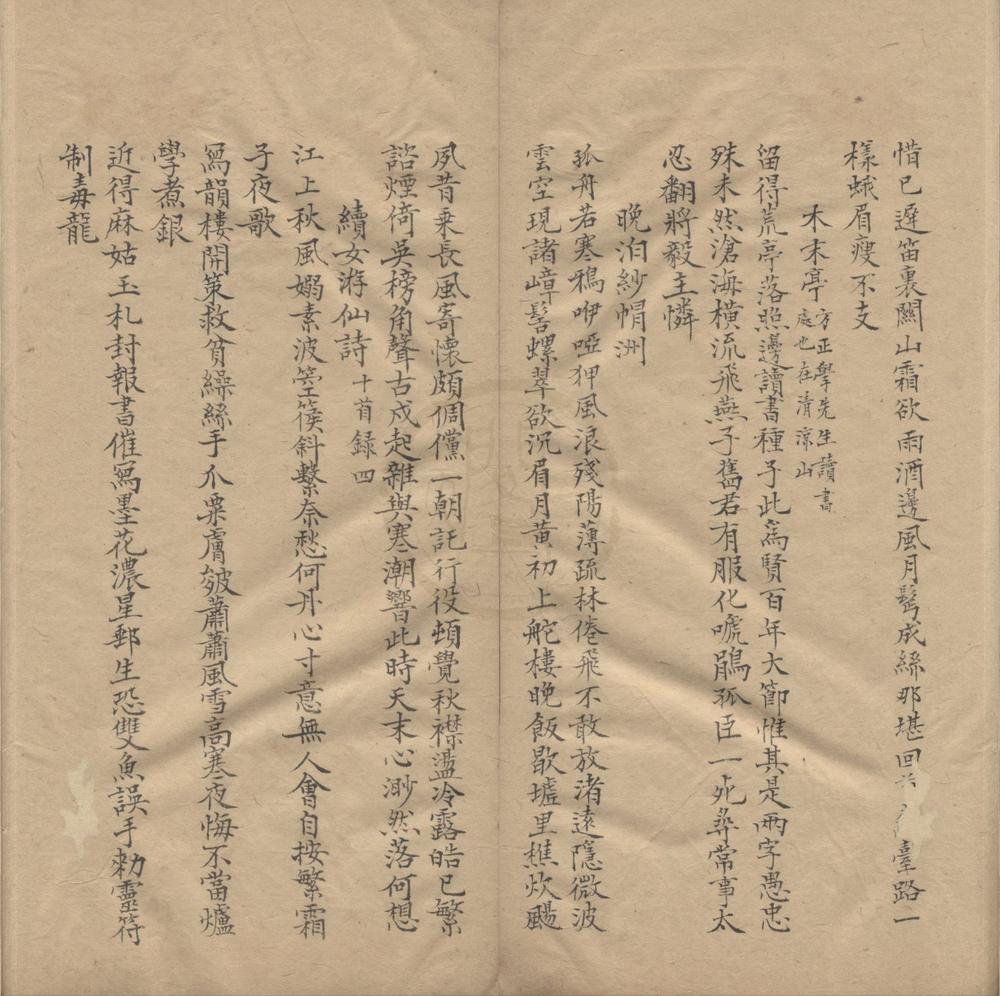 惜已遲笛裏關山霜欲雨酒邊風月髩成絲那堪回臺路一
樣蛾眉瘦不支
木末亭方正學先生讀書處也在清涼山
留得荒亭落照邊讀書種子此爲賢百年大節惟其是兩字愚忠
殊未然滄海橫流飛燕子舊君有服化嗁鵑孤臣一死尋常事太
忍翻將毅主憐
晚泊紗帽洲
孤舟若寒鴉咿啞狎風浪殘陽薄疏林倦飛不敢放渚遠隱微波
雲空現諸嶂髻螺翠欲沉眉月黄初上舵樓晚飯歇墟里樵炊颺
夙昔乘長風寄懷頗倜儻一朝託行役頓覺秋襟盪冷露皓已繁
諮煙倚吳榜角聲古戍起雜與寒潮響此時天末心渺然落何想
續女游仙詩十首録四
江上秋風嫋素波箜篌斜繫奈愁何丹心寸意無人會自按繁霜
子夜歌
寫韻樓開策救貧繰絲手爪粟膚皴蕭蕭風雪高寒夜悔不當爐
學煮銀
近得麻姑玉札封報書催寫墨花濃星郵生恐雙魚誤手勑靈符
制毒龍